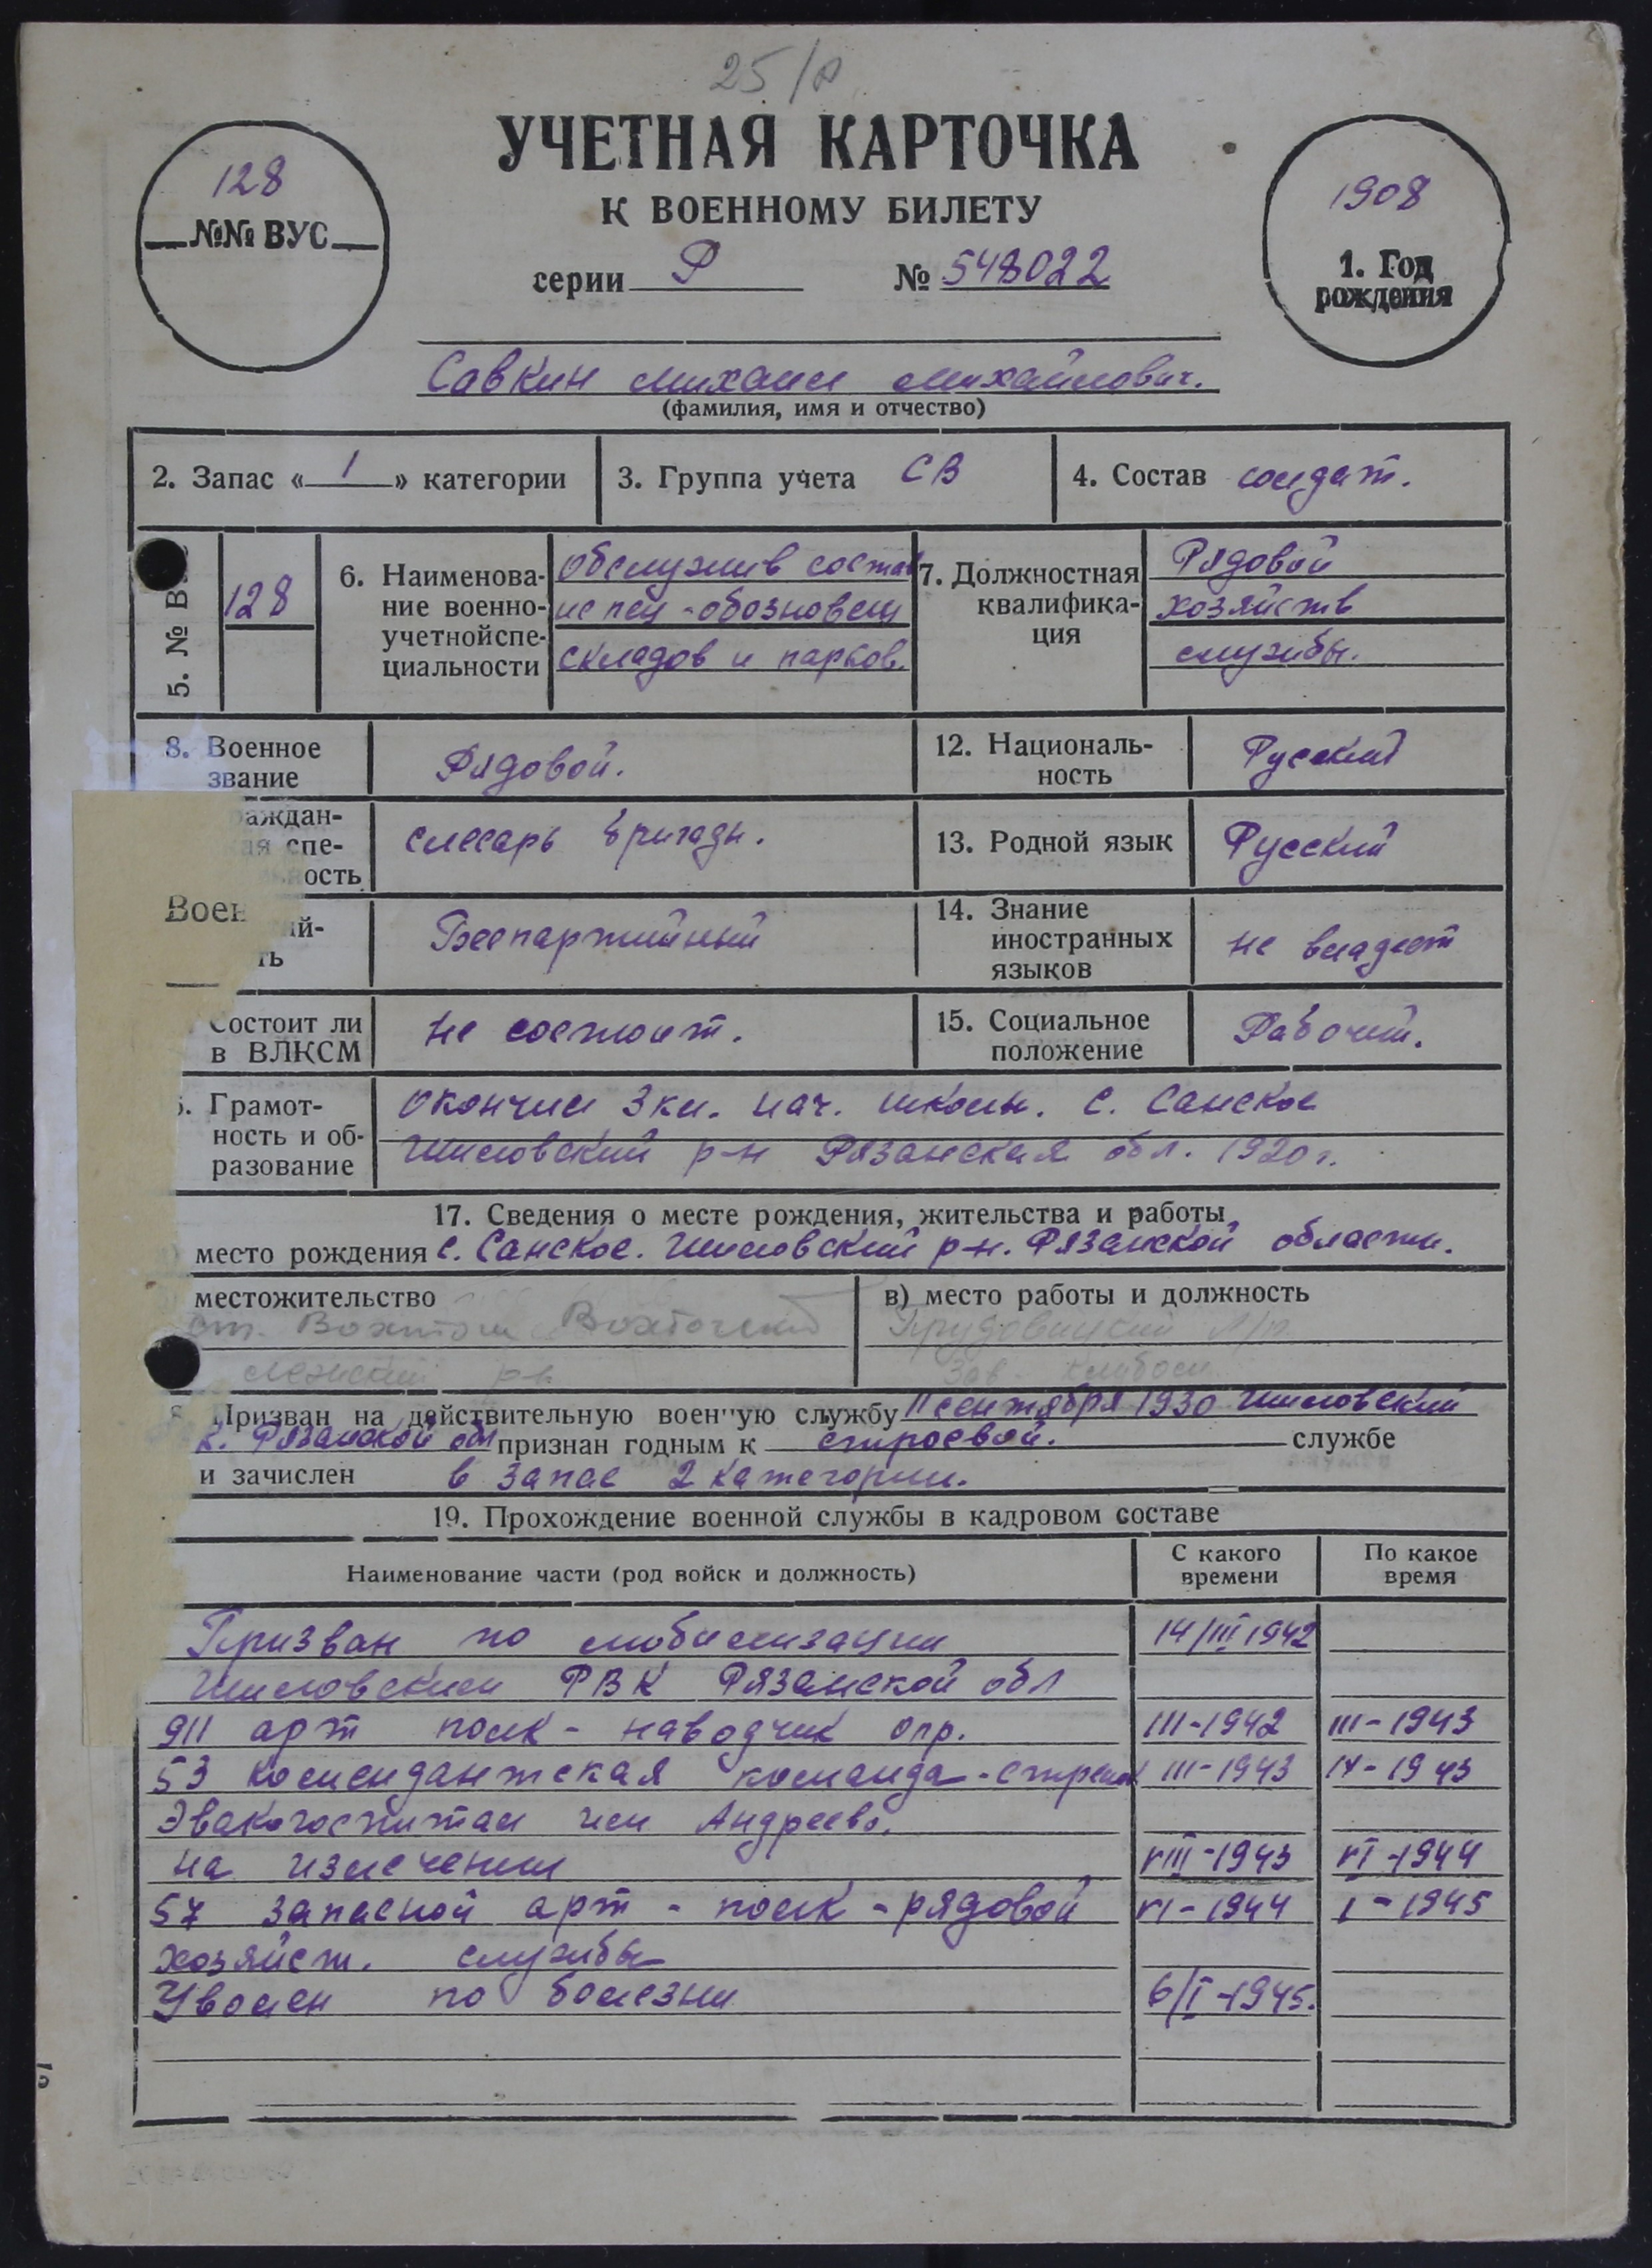 25/р
УЧЕТНАЯ КАРТОЧКА
К ВОЕННОМУ БИЛЕТУ
серии Р № 548022
128
№№ ВУС
1908
1. Год
рождения
Савкин Михаил Михайлович.
(фамилия, имя и отчество)
2. Запас « 1 » категории
3. Группа учета СВ
4. Состав солдат.
5. № В
128
6. Наименова-
ние военно-
учетнойспе-
циальности
обслужив состав
обозновещ
складов и парков.
7. Должностная
квалифика-
ция
Рядовой
хозяйств
службы.
8. Военное
звание
Рядовой.
12. Националь-
ность
Русский
аждан-
ая спе-
ость
слесарь бригады.
13. Родной язык
Русский
Воен
ий-
ть
Беспартийный
14. Знание
иностранных
языков
не владеет
Состоит ли
в ВЛКСМ
не состоит.
15. Социальное
положение
Рабочий.
Грамот-
ность и об-
разование
окончил 3 кл. нач. школы. с. Санское
Шиловский р-н Рязанская обл. 1920 г.
17. Сведения о месте рождения, жительства и работы
место рождения с. Санское. Шиловский р-н. Рязанской области.
местожительство
ст. Вохтога
Лежский р-н
в) место работы и должность
Зав. клубом
Призван на действительную военную службу 11 сентября 1930 Шиловский
Рязанской обл признан годным к строевой. службе
и зачислен в запас 2 категории.
19. Прохождение военной службы в кадровом составе
Наименование части (род войск и должность)
С какого
времени
По какое
время
Призван по мобилизации 14/III 1942
Шиловским РВК Рязанской обл
911 арт полк - наводчик опр. III-1942 III-1943
53 комендантская команда - стрелок III-1943 IV-1943
Эвакогоспитал им Андреева.
на излечении VIII-1943 VI-1944
57 запасной арт - полк - рядовой VI-1944 I-1945
хозяйст. службы
Уволен по болезни 6/I-1945.